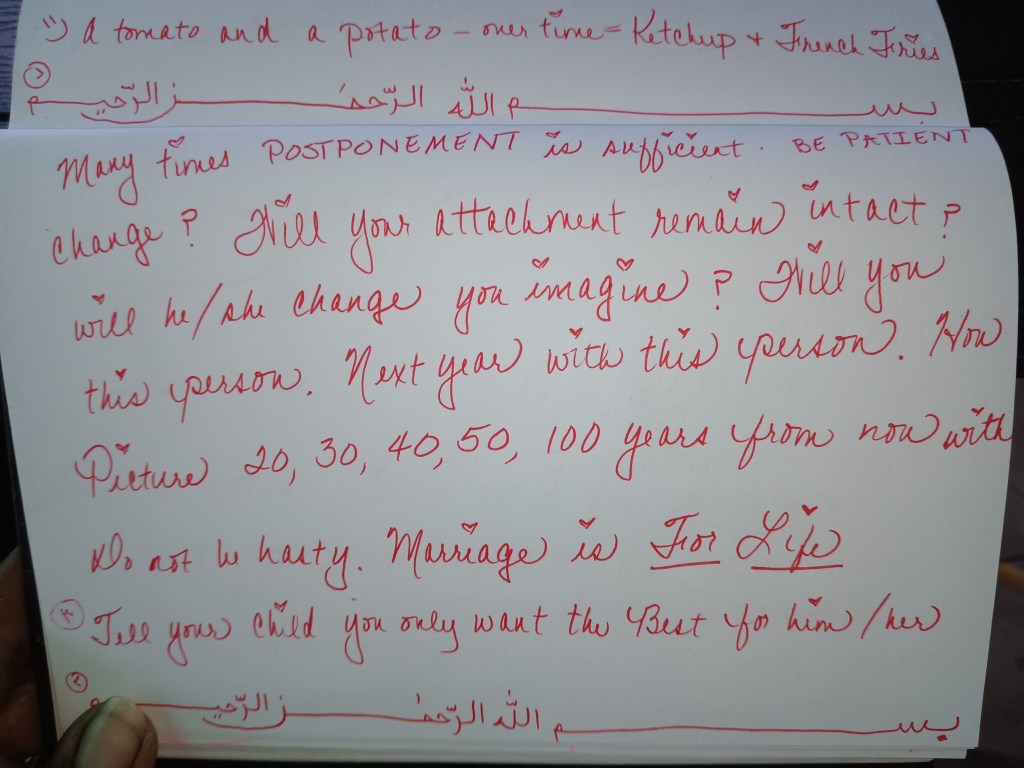 A tomato and a potato – over time = Ketchup + French Fries
بسم الله الرّحمٰن الرّحيم
Many times POSTPONEMENT is sufficient. BE PATIENT
change? Will your attachment remain intact?
will he/she change you imagine? Will you
this person. Next year with this person. How
Picture 20, 30, 40, 50, 100 years from now with
Do not be hasty. Marriage is For Life
Tell your child you only want the Best for him/her
بسم الله الرّحمٰن الرّحيم